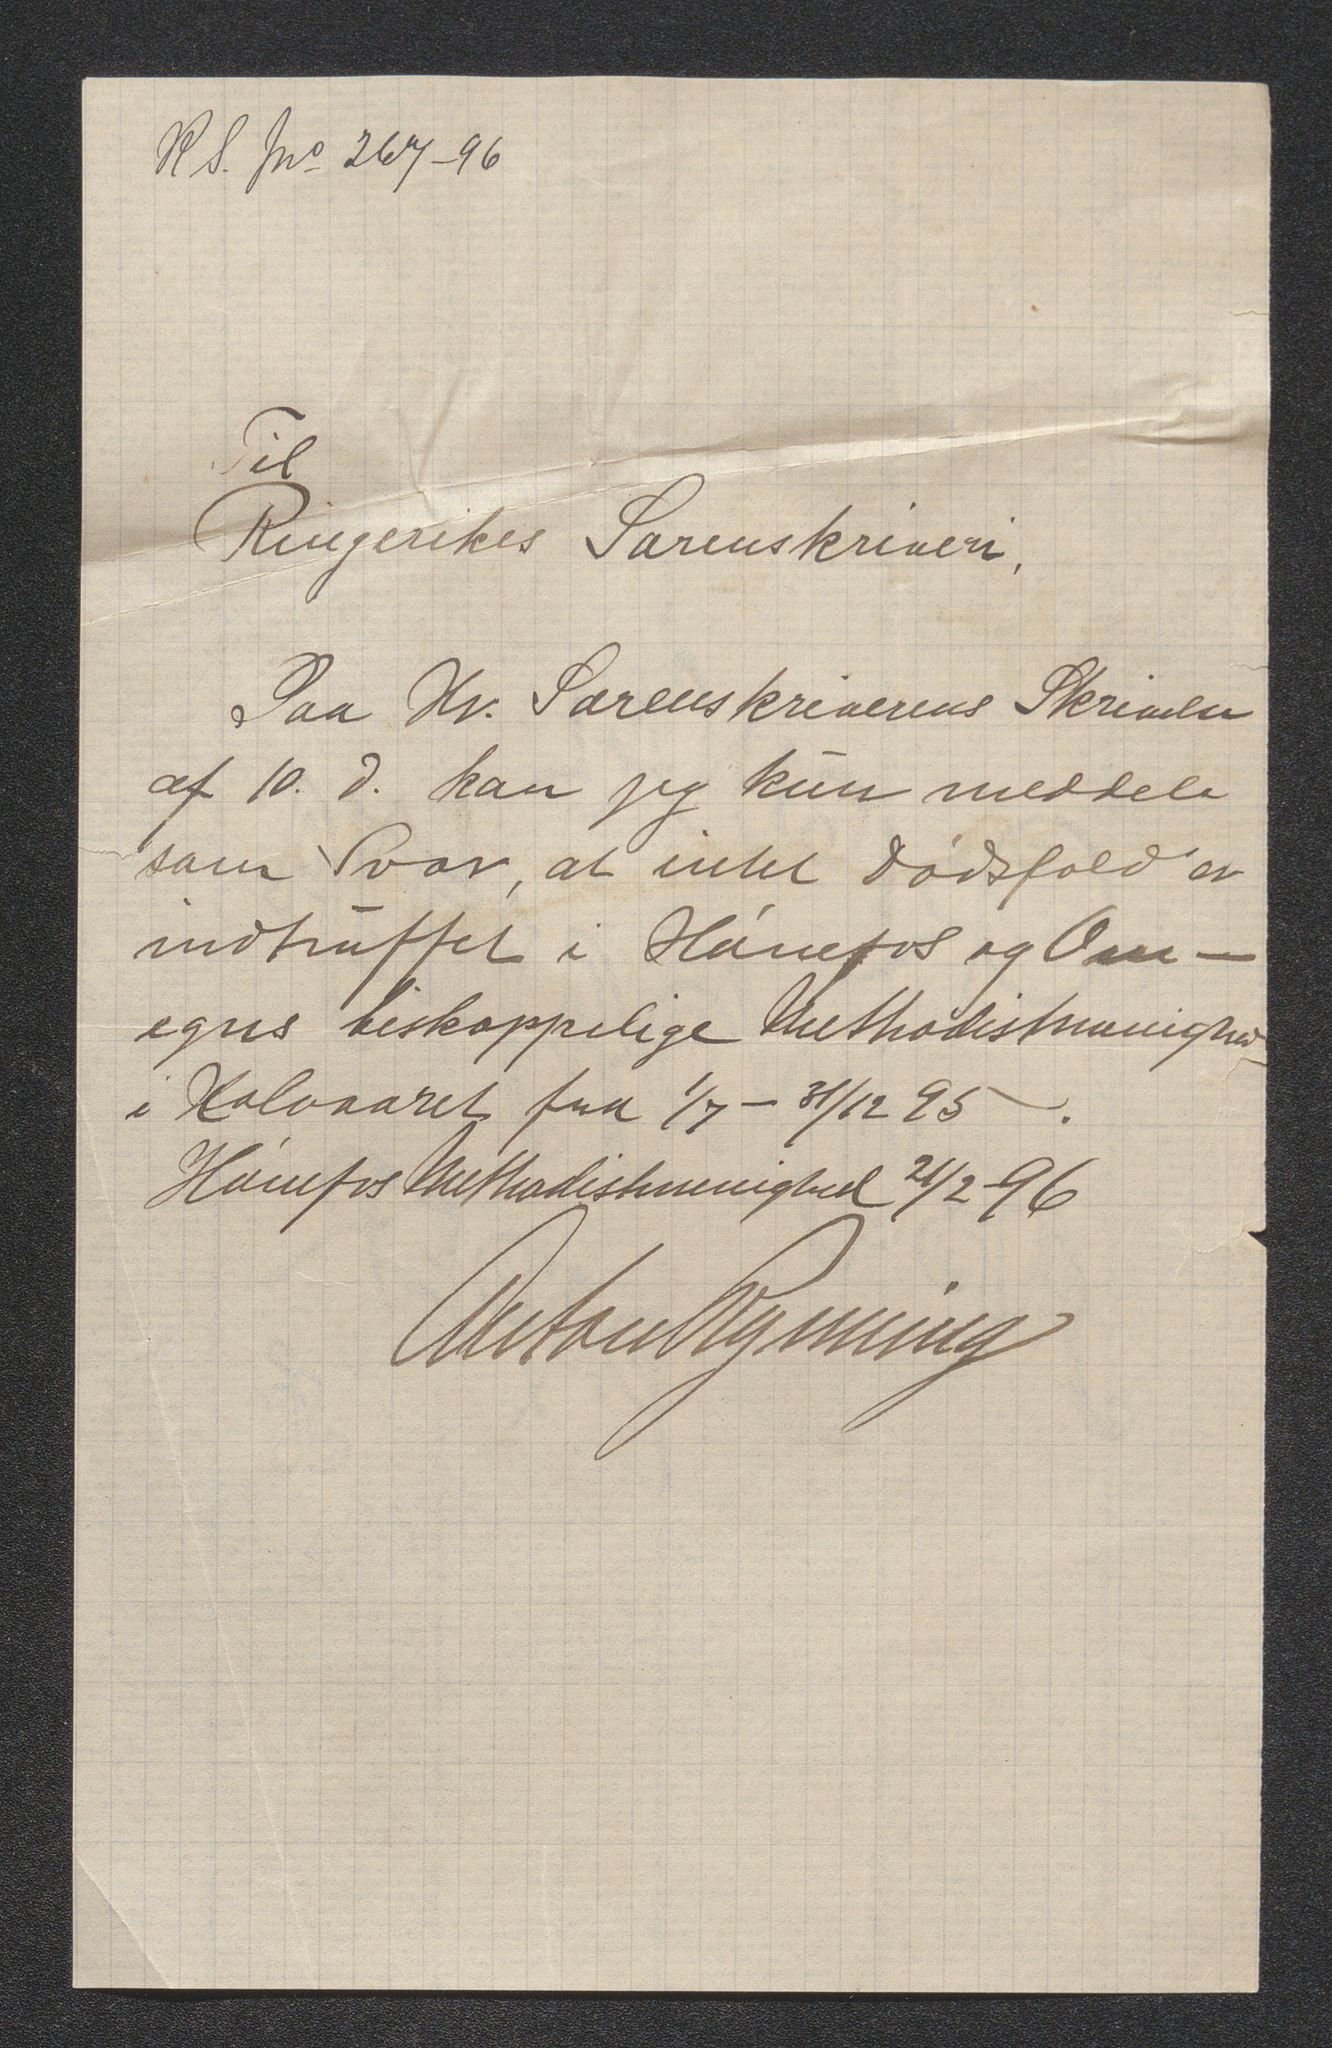 R S. Jno 267-96
Til
Ringerikes Sorenskriveri,
Paa Hr. Sorenskriverens Skrivelse
af 10. d. kan jeg kun meddele
som Svar, at intet Dødsfald er
indtruffet i Hønefos og Om-
egns biskoppelige Methodistmenighed
i Halvaaret fra 1/7 - 31/12 95.
Hønefos Methodistmenighed 21/2 -96
Anton Rynning